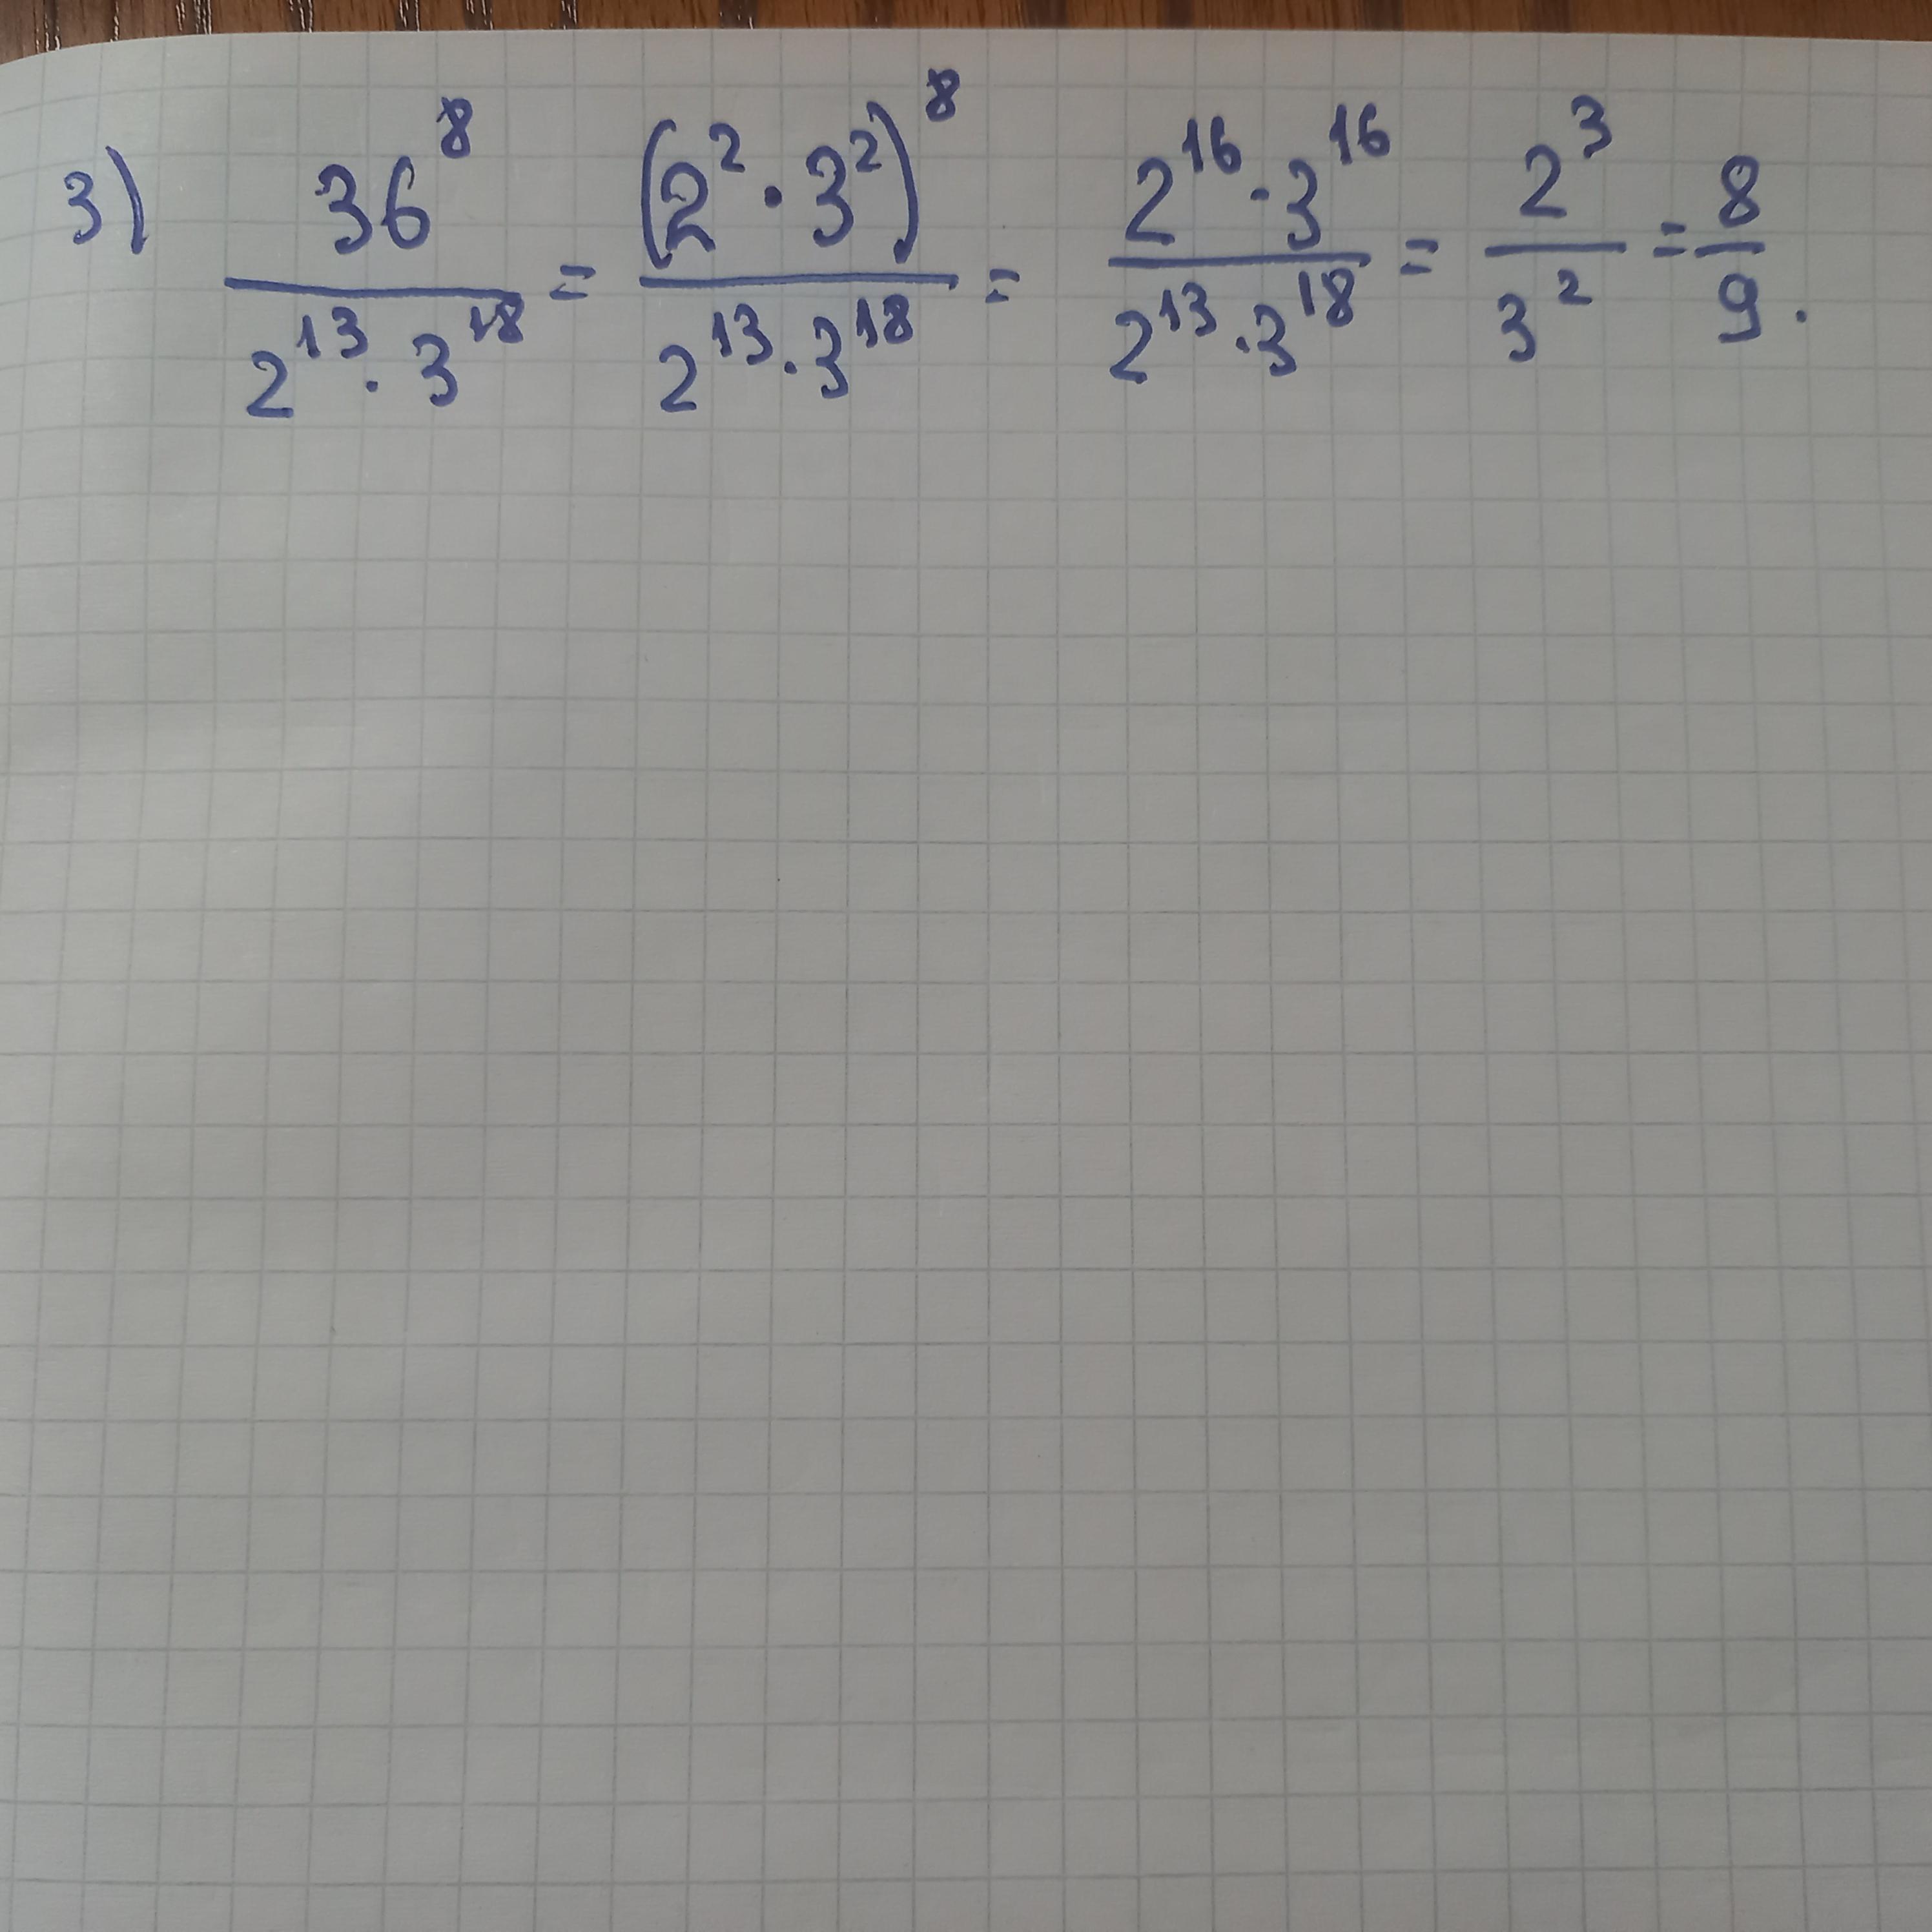 3) 36^8 / (2^13 · 3^18) = (2^2 · 3^2)^8 / (2^13 · 3^18) = (2^16 · 3^16) / (2^13 · 3^18) = 2^3 / 3^2 = 8/9.